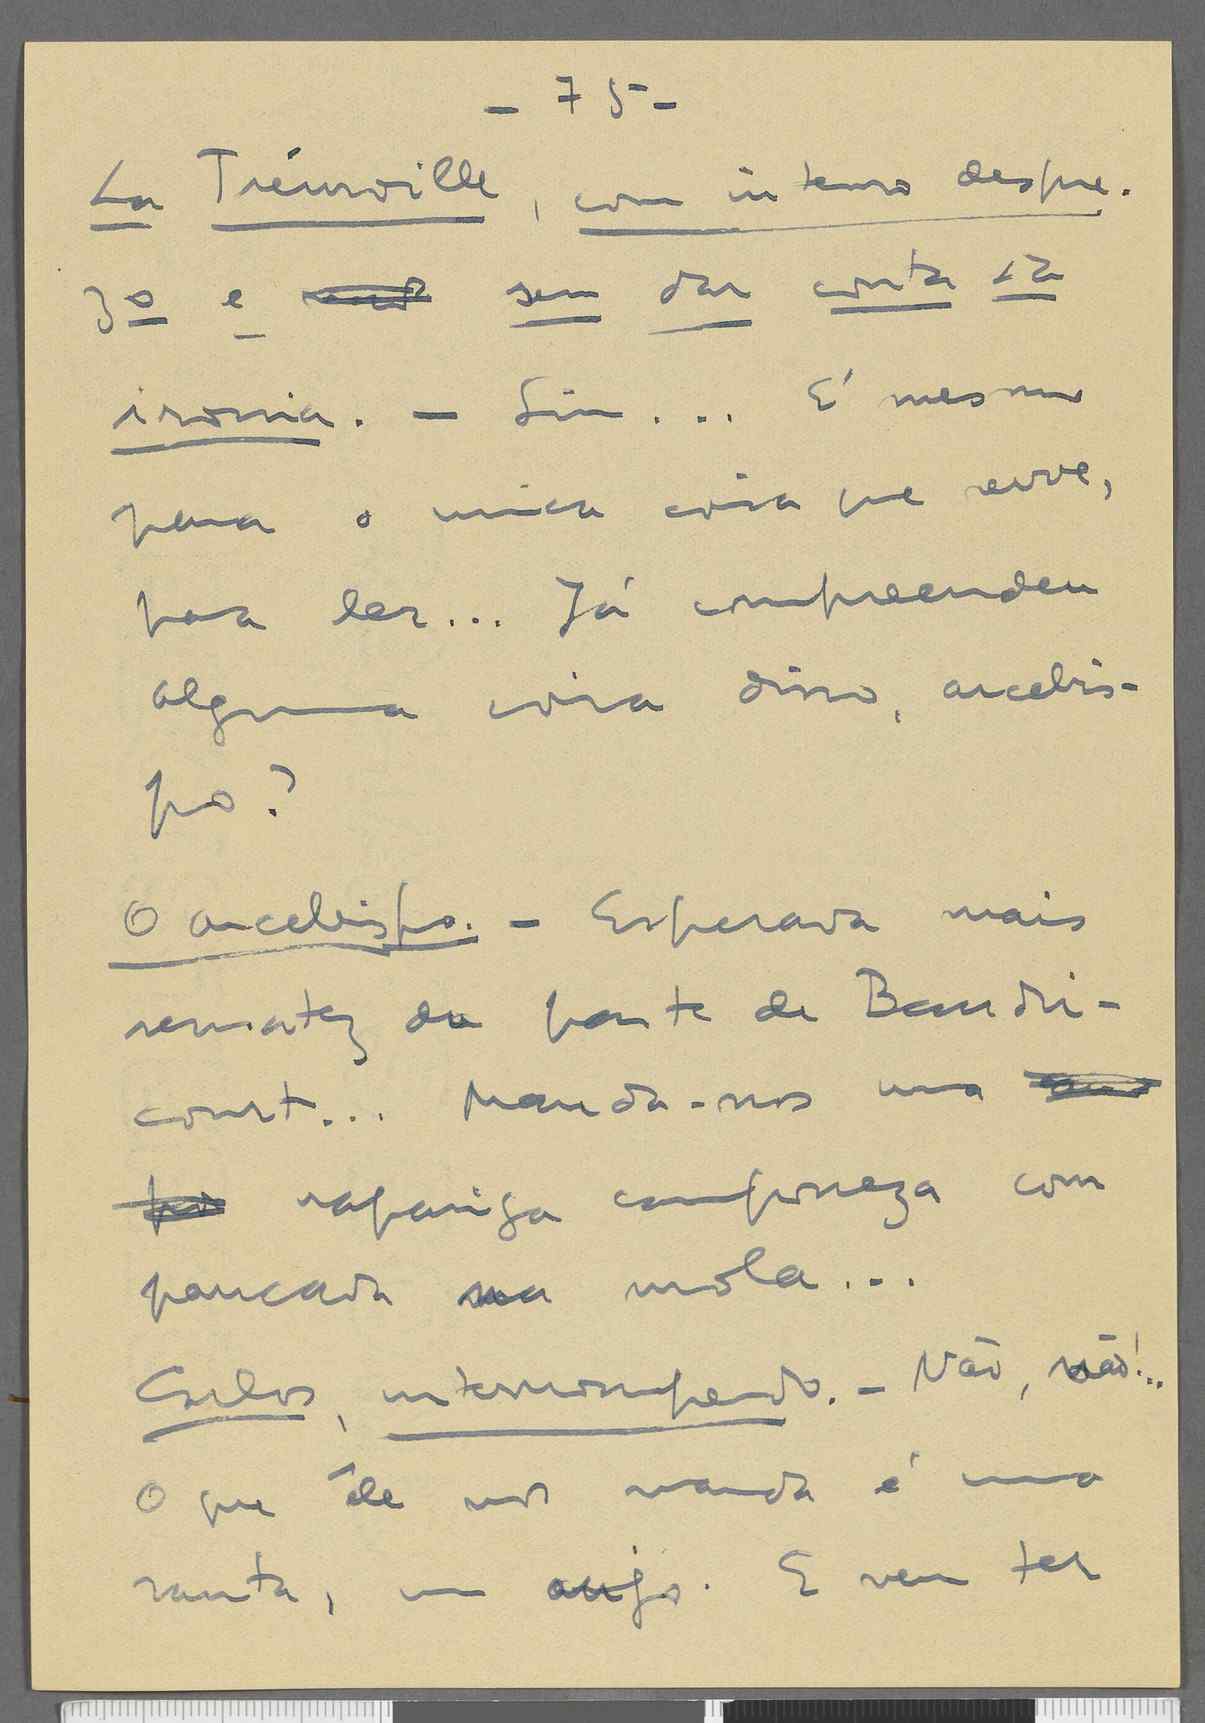 - 75 -
La Trémoille, com intenso despre-
zo e sem dar conta da
ironia. - Sim... E' mesmo
para o unica coisa que serve,
para ler... Já compreendeu
alguma coisa disso, arcebis-
po?
O arcebispo. - Esperava mais
sensatez da parte de Baudri-
court... Manda-nos uma
rapariga camponeza com
pancada na mola...
Carlos, interrompendo. - Não, não!..
O que êle nos manda é uma
santa, um anjo. E vem ter